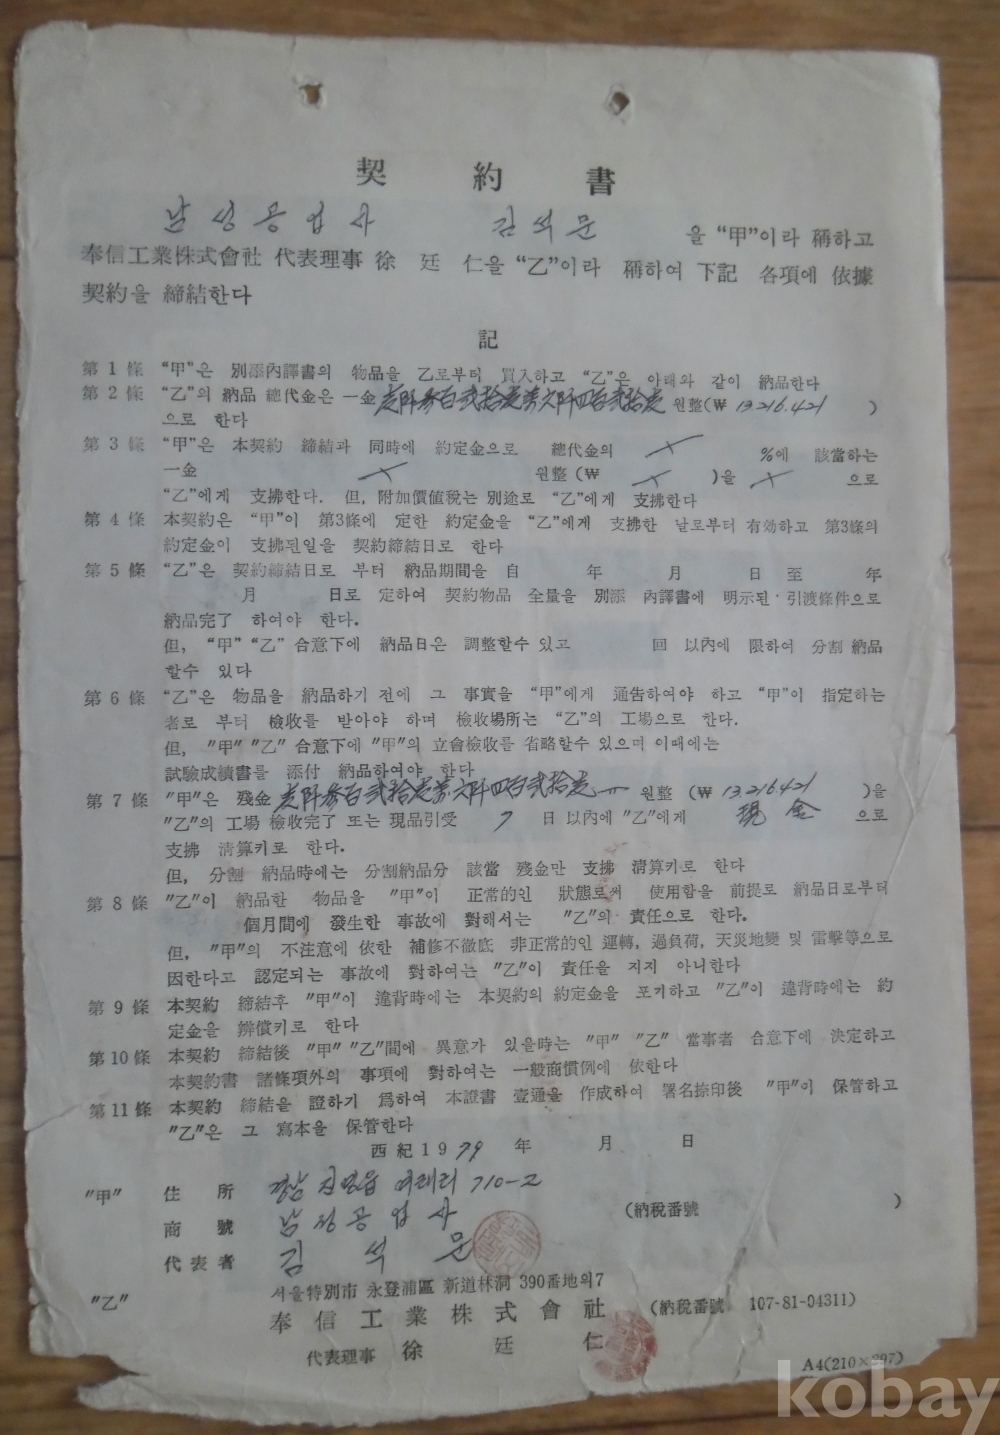 契約書
남성공업사 김석문 을 “甲”이라 稱하고
奉信工業株式會社 代表理事 徐廷仁을 “乙”이라 稱하여 下記 各項에 依據
契約을 締結한다
記
第1條 “甲”은 別添內譯書의 物品을 乙로부터 買入하고 “乙”은 아래와 같이 納品한다
第2條 “乙”의 納品 總代金은 一金 원整(₩ 13,216,421 )
으로 한다
第3條 “甲”은 本契約 締結과 同時에 約定金으로 總代金의 %에 該當하는
一金 원整(₩ )을 으로
“乙”에게 支拂한다. 但, 附加價値税는 別途로 “乙”에게 支拂한다
第4條 本契約은 “甲”이 第3條에 定한 約定金을 “乙”에게 支拂한 날로부터 有効하고 第3條의
約定金이 支拂된일을 契約締結日로 한다
第5條 “乙”은 契約締結日로 부터 納品期間을 自 年 月 日 至 年
月 日로 定하여 契約物品 全量을 別添 內譯書에 明示된 引渡條件으로
納品完了 하여야 한다.
但, “甲” “乙” 合意下에 納品日은 調整할수 있고 回 以內에 限하여 分割 納品
할수 있다
第6條 “乙”은 物品을 納品하기 전에 그 事實을 “甲”에게 通告하여야 하고 “甲”이 指定하는
者로 부터 檢收를 받아야 하며 檢收場所는 “乙”의 工場으로 한다.
但, "甲" "乙" 合意下에 "甲"의 立會檢收를 省略할수 있으며 이때에는
試驗成績書를 添付 納品하여야 한다
第7條 "甲"은 殘金 원整 (₩ 13,216,421 )을
"乙"의 工場 檢收完了 또는 現品引受 7 日 以內에 "乙"에게 現金 으로
支拂 淸算키로 한다.
但, 分割 納品時에는 分割納品分 該當 殘金만 支拂 淸算키로 한다
第8條 "乙"이 納品한 物品을 "甲"이 正常的인 狀態로써 使用함을 前提로 納品日로부터
個月間에 發生한 事故에 對해서는 "乙"의 責任으로 한다.
但, "甲"의 不注意에 依한 補修不徹底 非正常的인 運轉, 過負荷, 天災地變 및 雷擊等으로
因한다고 認定되는 事故에 對하여는 "乙"이 責任을 지지 아니한다
第9條 本契約 締結후 "甲"이 違背時에는 本契約의 約定金을 포기하고 "乙"이 違背時에는 約
定金을 辨償키로 한다
第10條 本契約 締結後 "甲" "乙"間에 異意가 있을時는 "甲" "乙" 當事者 合意下에 決定하고
本契約書 諸條項外의 事項에 對하여는 一般商慣例에 依한다
第11條 本契約 締結을 證하기 爲하여 本證書 壹通을 作成하여 署名捺印後 "甲"이 保管하고
"乙"은 그 寫本을 保管한다
西紀 1979 年 月 日
"甲" 住所 경남 710-2
商號 남성공업사 (納税番號 )
代表者 김석문
"乙" 서울特別市 永登浦區 新道林洞 390番地의7
奉信工業株式會社 (納税番號 107-81-04311)
代表理事 徐廷仁
A4(210×297)
kobay